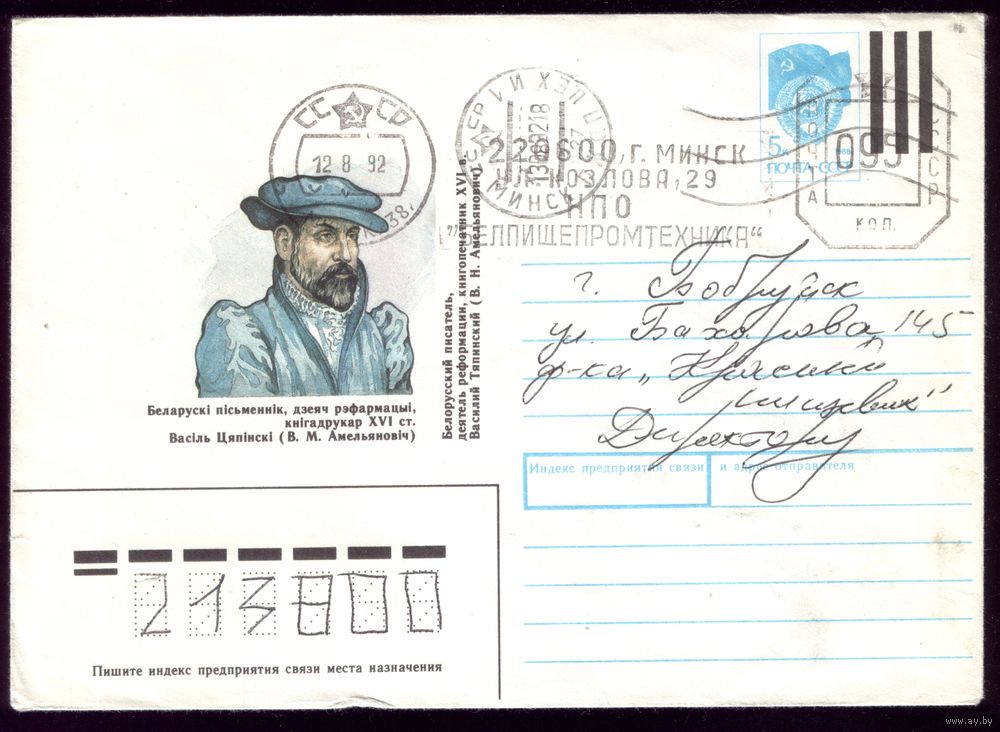 СС СР
12 8 92
МИНСК
220600, г. МИНСК
УЛ. КОЗЛОВА, 29
НПО
"БЕЛПИЩЕПРОМТЕХНИКА"
5к
1988
ПОЧТА СССР
ПОЧТА
СССР
095
КОП.
Беларускі пісьменнік, дзеяч рэфармацыі,
кнігадрукар XVI ст.
Васіль Цяпінскі (В. М. Амельяновіч)
Белорусский писатель,
деятель реформации, книгопечатник XVI в.
Василий Тяпинский (В. Н. Амельянович)
г. Бобруйск
ул. Бахарова, 145
ф-ка „Красный
пищевик"
Директору
Индекс предприятия связи и адрес отправителя
213800
Пишите индекс предприятия связи места назначения
www.ay.by